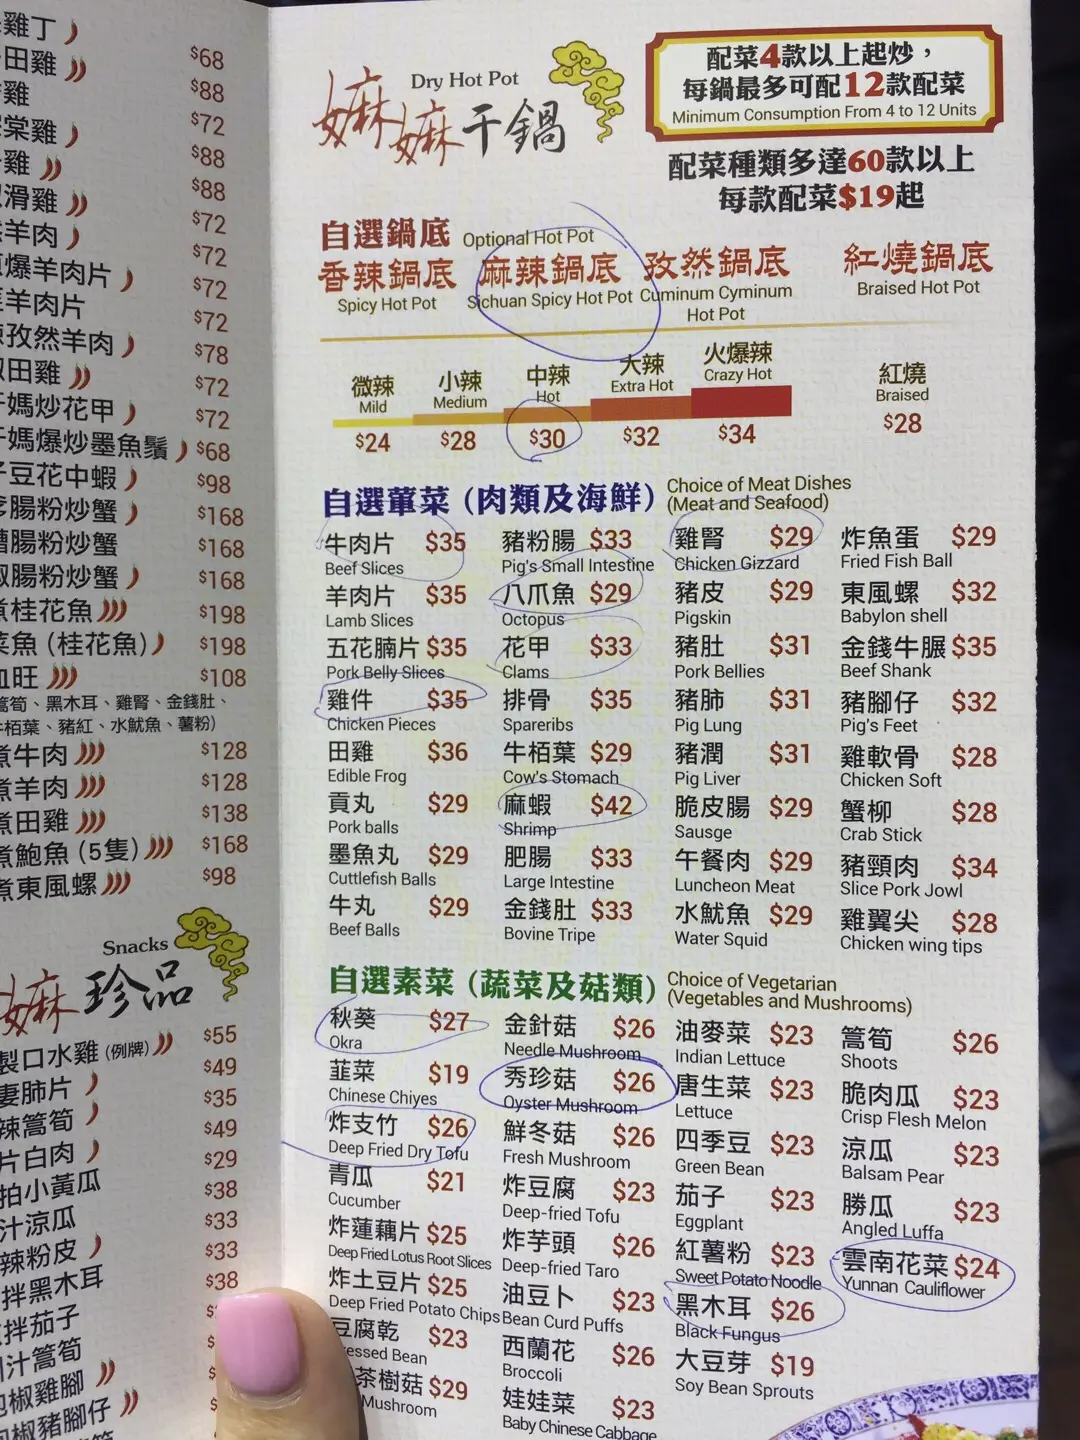 雞丁
$68
田雞
$88
雞
$72
棠雞
$88
雞
$88
滑雞
$72
羊肉
$72
爆羊肉片
$72
羊肉片
$72
孜然羊肉
$78
田雞
$72
媽炒花甲
$72
媽爆炒墨魚鬚
$68
豆花中蝦
$98
腸粉炒蟹
$168
腸粉炒蟹
$168
腸粉炒蟹
$168
桂花魚
$198
魚 (桂花魚)
$198
血旺
$108
萵筍、黑木耳、雞腎、金錢肚、
牛栢葉、豬紅、水魷魚、薯粉)
煮牛肉
$128
煮羊肉
$128
煮田雞
$138
煮鮑魚 (5隻)
$168
煮東風螺
$98
Snacks
嫲 珍品
製口水雞 (例牌)
$55
妻肺片
$49
辣萵筍
$35
片白肉
$49
拍小黃瓜
$29
汁涼瓜
$38
辣粉皮
$33
拌黑木耳
$33
拌茄子
$38
汁萵筍
椒雞腳
椒豬腳仔
Dry Hot Pot
嫲嫲干鍋
配菜4款以上起炒，
每鍋最多可配12款配菜
Minimum Consumption From 4 to 12 Units
配菜種類多達60款以上
每款配菜$19起
自選鍋底 Optional Hot Pot
香辣鍋底 麻辣鍋底 孜然鍋底 紅燒鍋底
Spicy Hot Pot Sichuan Spicy Hot Pot Cuminum Cyminum Braised Hot Pot
Hot Pot
微辣 小辣 中辣 大辣 火爆辣 紅燒
Mild Medium Hot Extra Hot Crazy Hot Braised
$24 $28 $30 $32 $34 $28
自選葷菜 (肉類及海鮮) Choice of Meat Dishes
(Meat and Seafood)
牛肉片 $35 豬粉腸 $33 雞腎 $29 炸魚蛋 $29
Beef Slices Pig's Small Intestine Chicken Gizzard Fried Fish Ball
羊肉片 $35 八爪魚 $29 豬皮 $29 東風螺 $32
Lamb Slices Octopus Pigskin Babylon shell
五花腩片 $35 花甲 $33 豬肚 $31 金錢牛𦟌 $35
Pork Belly Slices Clams Pork Bellies Beef Shank
雞件 $35 排骨 $35 豬肺 $31 豬腳仔 $32
Chicken Pieces Spareribs Pig Lung Pig's Feet
田雞 $36 牛栢葉 $29 豬潤 $31 雞軟骨 $28
Edible Frog Cow's Stomach Pig Liver Chicken Soft
貢丸 $29 麻蝦 $42 脆皮腸 $29 蟹柳 $28
Pork balls Shrimp Sausge Crab Stick
墨魚丸 $29 肥腸 $33 午餐肉 $29 豬頸肉 $34
Cuttlefish Balls Large Intestine Luncheon Meat Slice Pork Jowl
牛丸 $29 金錢肚 $33 水魷魚 $29 雞翼尖 $28
Beef Balls Bovine Tripe Water Squid Chicken wing tips
自選素菜 (蔬菜及菇類) Choice of Vegetarian
(Vegetables and Mushrooms)
秋葵 $27 金針菇 $26 油麥菜 $23 萵筍 $26
Okra Needle Mushroom Indian Lettuce Shoots
韮菜 $19 秀珍菇 $26 唐生菜 $23 脆肉瓜 $23
Chinese Chiyes Oyster Mushroom Lettuce Crisp Flesh Melon
炸支竹 $26 鮮冬菇 $26 四季豆 $23 涼瓜 $23
Deep Fried Dry Tofu Fresh Mushroom Green Bean Balsam Pear
青瓜 $21 炸豆腐 $23 茄子 $23 勝瓜 $23
Cucumber Deep-fried Tofu Eggplant Angled Luffa
炸蓮藕片 $25 炸芋頭 $26 紅薯粉 $23 雲南花菜 $24
Deep Fried Lotus Root Slices Deep-fried Taro Sweet Potato Noodle Yunnan Cauliflower
炸土豆片 $25 油豆卜 $23 黑木耳 $26
Deep Fried Potato Chips Bean Curd Puffs Black Fungus
豆腐乾 $23 西蘭花 $26 大豆芽 $19
essed Bean Broccoli Soy Bean Sprouts
茶樹菇 $29 娃娃菜 $23
Mushroom Baby Chinese Cabbage